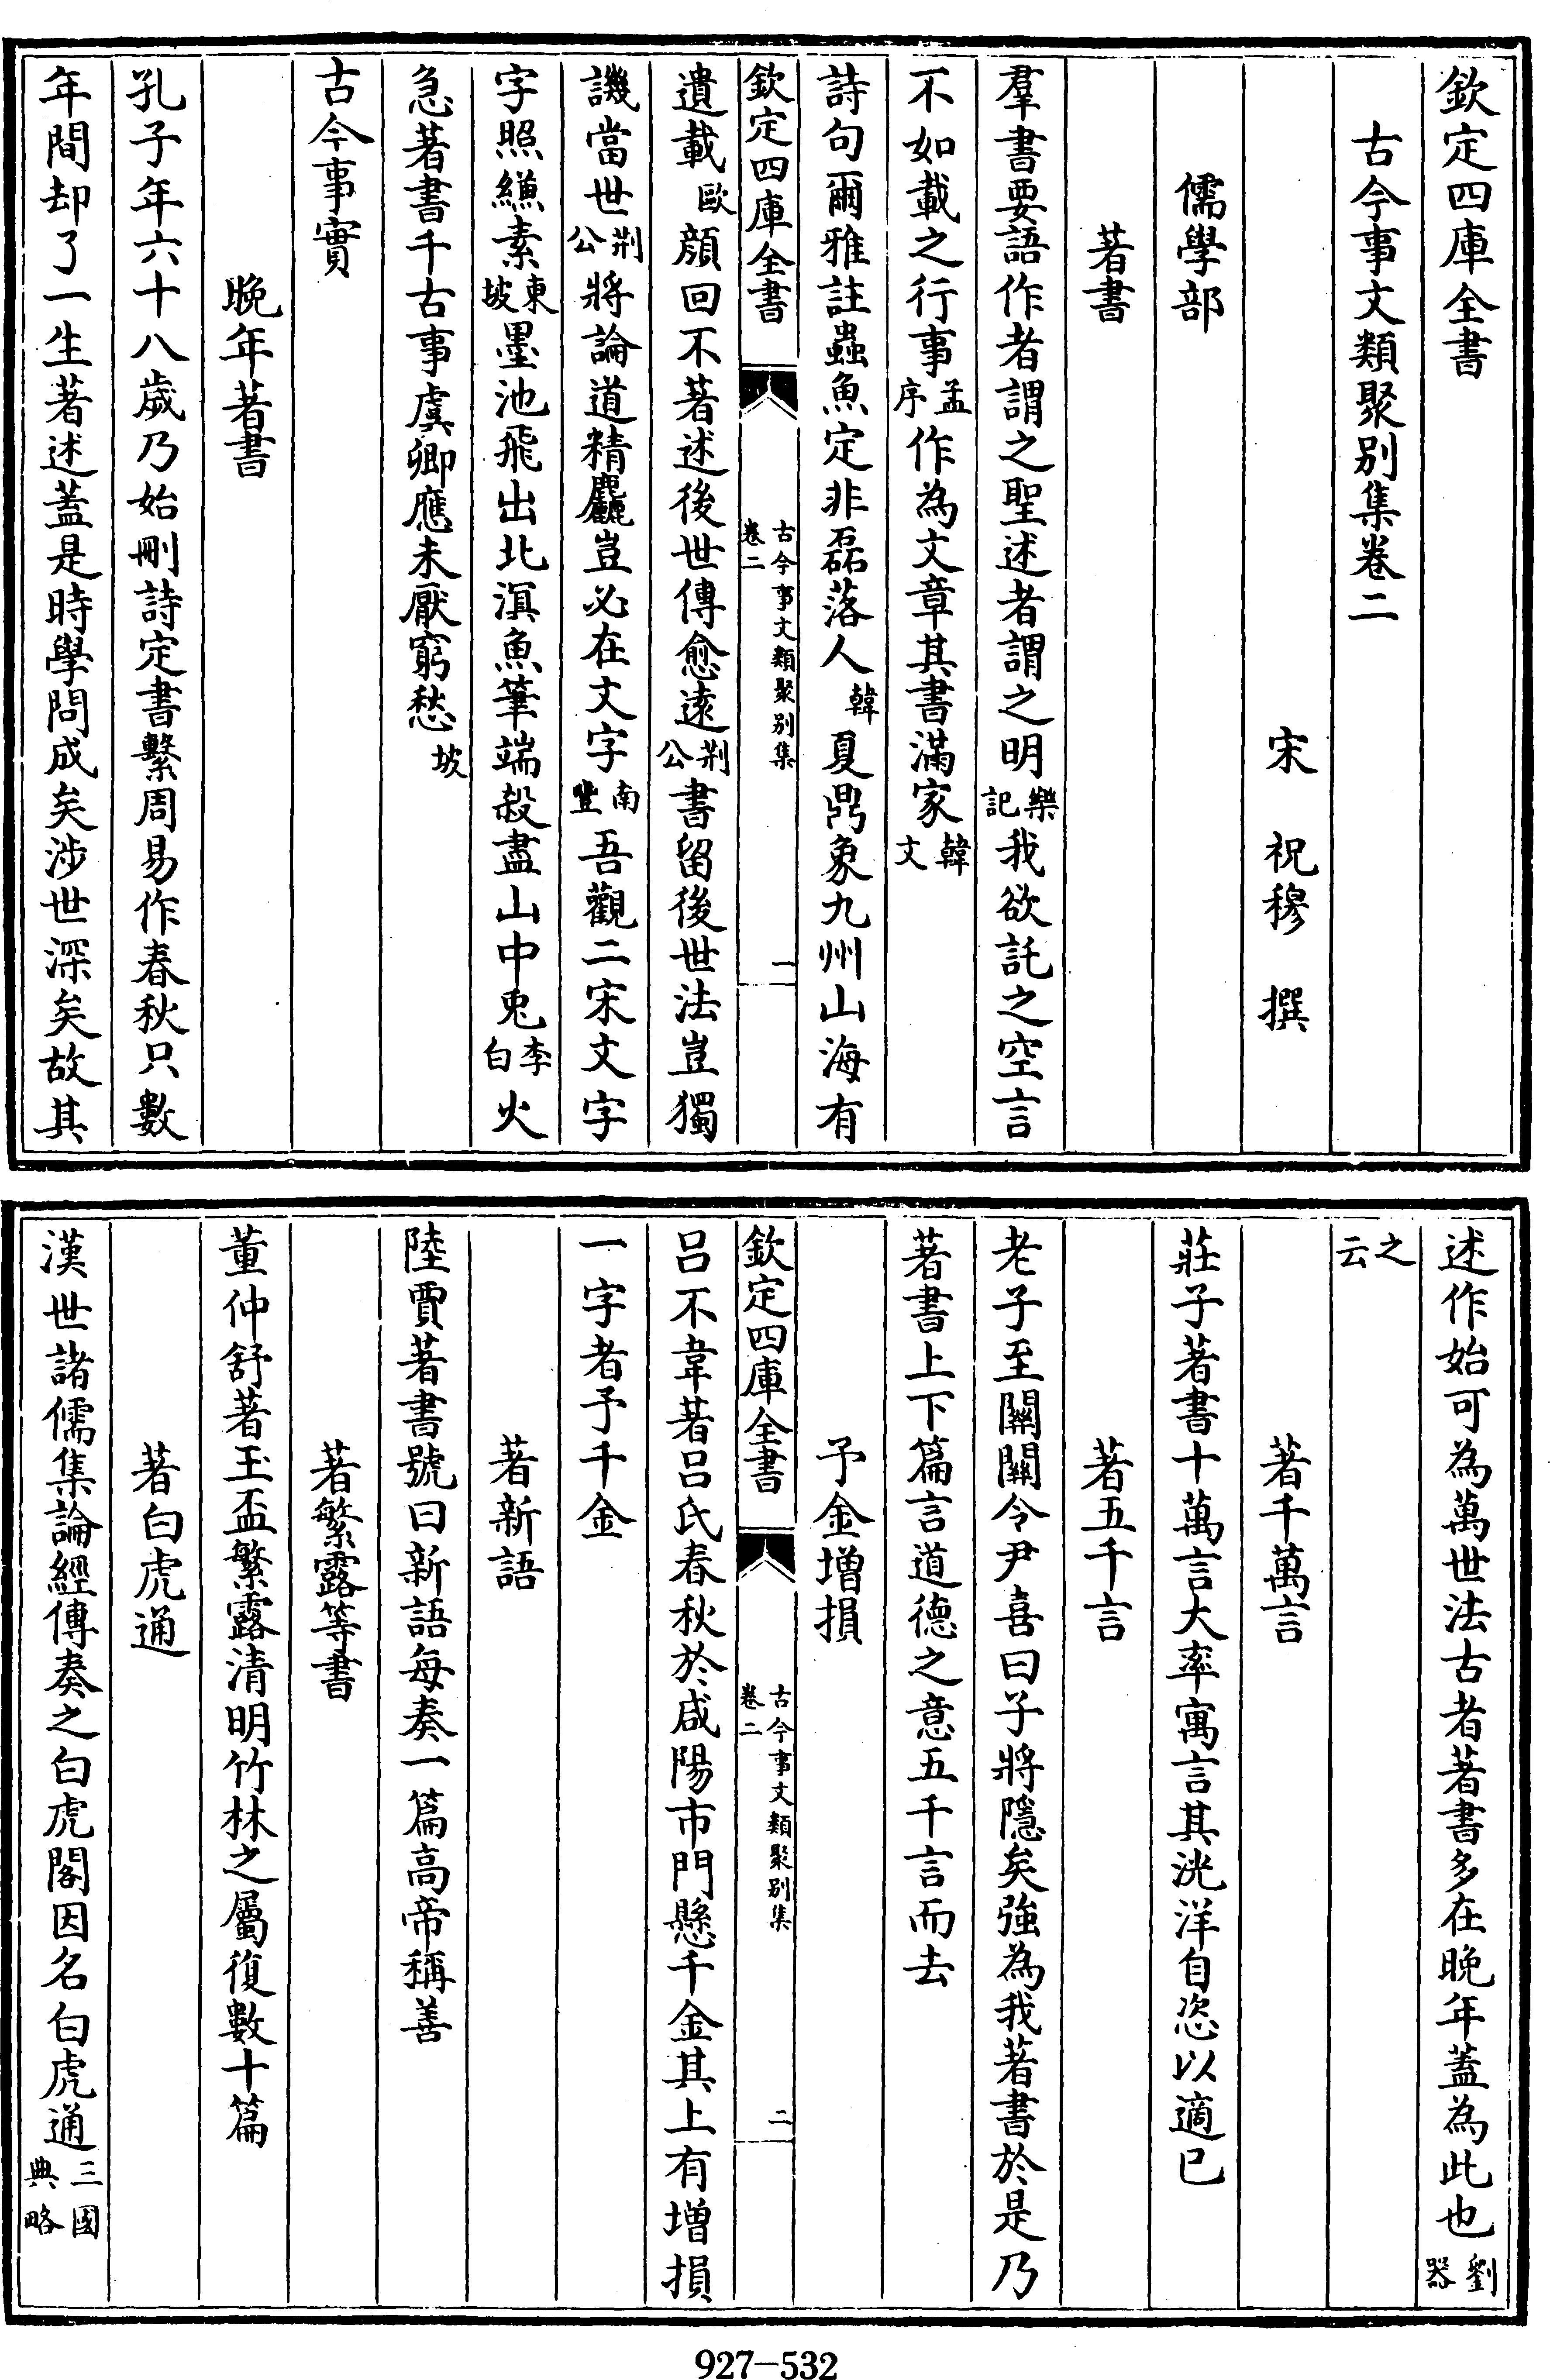 欽定四庫全書
古今事文類聚别集卷二
宋 祝穆 撰
儒學部
著書
羣書要語作者謂之聖述者謂之明樂記我欲託之空言
不如載之行事孟序作為文章其書滿家韓文
詩句爾雅註蟲魚定非磊落人韓夏鼎象九州山海有
欽定四庫全書 古今事文類聚别集 卷二 一
遺載歐顔回不著述後世傳愈逺荆公書留後世法豈獨
譏當世荆公將論道精麤豈必在文字南豐吾觀二宋文字
字照縑素東坡墨池飛出北溟魚筆端殺盡山中兎李白火
急著書千古事虞卿應未厭窮愁坡
古今事實
晚年著書
孔子年六十八歲乃始刪詩定書繫周易作春秋只數
年間却了一生著述葢是時學問成矣涉世深矣故其
述作始可為萬世法古者著書多在晚年葢為此也劉器
之云
著千萬言
莊子著書十萬言大率寓言其洸洋自恣以適已
著五千言
老子至關關令尹喜曰子將隱矣強為我著書於是乃
著書上下篇言道德之意五千言而去
予金增損
欽定四庫全書 古今事文類聚别集 卷二 二
吕不韋著吕氏春秋於咸陽市門懸千金其上有增損
一字者予千金
著新語
陸賈著書號曰新語每奏一篇高帝稱善
著繁露等書
董仲舒著玉盃繁露清明竹林之屬復數十篇
著白虎通
漢世諸儒集論經傳奏之白虎閣因名白虎通三國典略
927-532